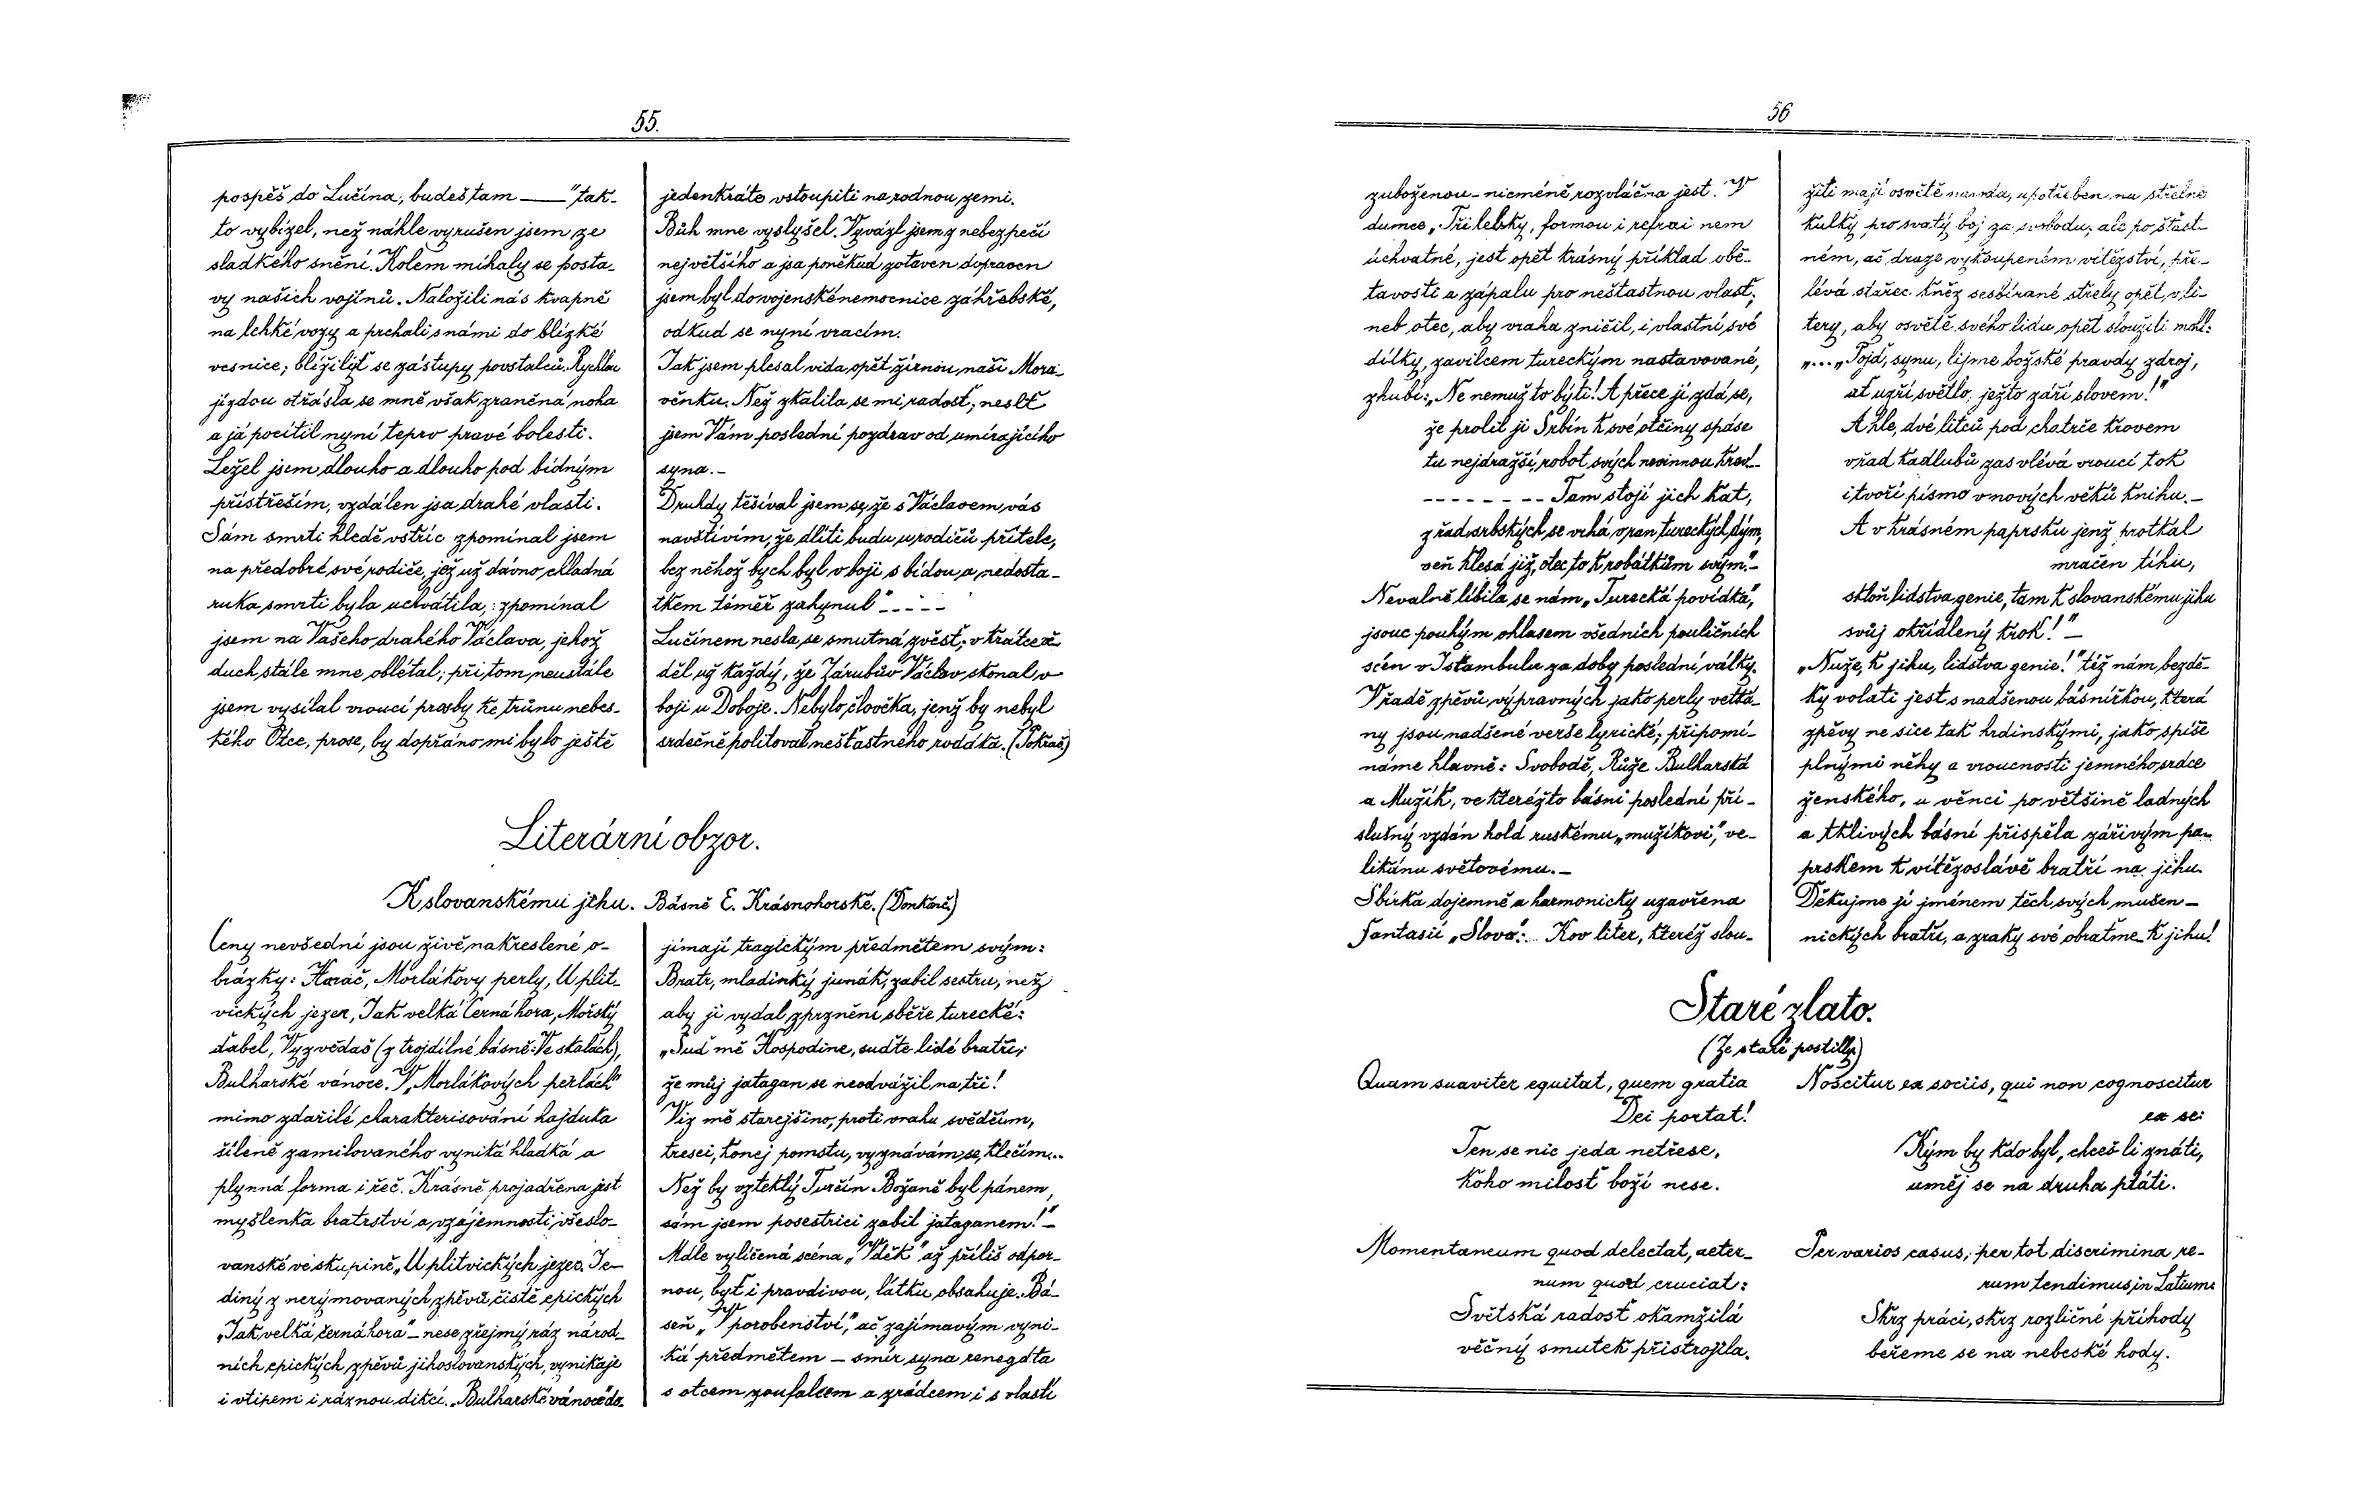 55.
pospěš do Lučina, budeš tam —— " tak-
to vybízel, než náhle vyrušen jsem ze
sladkého snění. Kolem míhaly se posta-
vy našich vojínů. Naložili nás kvapně
na lehké vozy a prchali s námi do blízké
vesnice; blížiliť se zástupy povstalců. Rychlou
jízdou otřásla se mně však zraněná noha
a já pocítil nyní teprv pravé bolesti.
Ležel jsem dlouho a dlouho pod bídným
přístřeším, vzdálen jsa drahé vlasti.
Sám smrti hledě vstříc zpomínal jsem
na předobré své rodiče, jež už dávno chladná
ruka smrti byla uchvátila, : zpomínal
jsem na Vašeho drahého Václava, jehož
duch stále mne oblétal; při tom neustále
jsem vysílal vroucí prosby ke trůnu nebes-
kého Otce, prose, by dopřáno mi bylo ještě
jedenkráte vstoupiti na rodnou zemi.
Bůh mne vyslyšel. Vyvázl jsem z nebezpečí
největšího a jsa poněkud zotaven dopraven
jsem byl do vojenské nemocnice záhřebské,
odkud se nyní vracím.
Jak jsem plesal vida opět žírnou naši Mora-
věnku. Než zkalila se mi radost; neslť
jsem Vám poslední pozdrav od umírajícího
syna. -
Druhdy těšíval jsem se, že s Václavem vás
navštívím, že dlíti budu u rodičů přítele,
bez něhož bych byl v boji s bídou a nedosta-
tkem téměř zahynul" - - - -
Lučinem nesla se smutná zvěst; v krátce vě-
děl už každý, že Zárubův Václav skonal v
boji u Doboje. Nebylo člověka, jenž by nebyl
srdečně politoval nešťastného rodáka. (Pokrač)
Literární obzor.
K slovanskému jihu. Básně E. Krásnohorské. (Dokonč.)
Ceny nevšední jsou živě nakreslené o-
brázky: Harač, Morlákovy perly, U plit-
vických jezer, Jak velká Černá hora, Mořský
ďábel, Vyzvědač (z trojdílné básně: Ve skalách),
Bulharské vánoce. V "Morlákových perlách"
mimo zdařilé charakterisování hajduka
šíleně zamilovaného vyniká hladká a
plynná forma i řeč. Krásně projadřena jest
myšlenka bratrství a vzájemnosti všeslo-
vanské ve skupině „U plitvických jezer. Je-
diný z nerýmovaných zpěvů čistě epických
„Jak velká černá hora" - nese zřejmý ráz národ-
ních epických zpěvů jihoslovanských, vynikaje
i vtipem i ráznou dikcí. „Bulharské vánoce" do-
jímají tragickým předmětem svým:
Bratr, mladinký junák, zabil sestru, než
aby ji vydal zprznění sběře turecké:
„Suď mě Hospodine, suďte lidé bratři;
že můj jatagan se neodvážil na tři!
Viz mě starejšino, proti vrahu svědčím,
tresci, konej pomstu, vyznávám se, klečím...
Než by vzteklý Turčín Božaně byl pánem,
sám jsem posestrici zabil jataganem!" -
Mdle vylíčená scéna „Vděk" až příliš odpor-
nou, byť i pravdivou, látku obsahuje. Bá-
seň „V porobenství", ač zajímavým vyni-
ká předmětem - smír syna renegáta
s otcem zoufalcem a zrádcem i s vlastí
56
zuboženou - nicméně rozvláčna jest. V
dumce „Tři lebky, formou i refrai nem
úchvatné, jest opět krásný příklad obě-
tavosti a zápalu pro nešťastnou vlasť;
neb otec, aby vraha zničil, i vlastní své
dítky, zavilcem tureckým nastavované,
zhubí: „Ne nemuž to býti! A přece jí zdá se,
že prolil ji Srbín k své otčiny spáse
tu nejdražší robot svých nevinnou krev! -
- - - - - - - - Tam stojí jich kat,
z řad srbských se vrhá v ran tureckých dým,
veň klesá již, otec to k robátkům svým." -
Nevalně líbila se nám „Turecká povídka",
jsouc pouhým ohlasem všedních pouličních
scén v Istambulu za doby poslední války.
V řadě zpěvů výpravných jako perly vetká-
ny jsou nadšené verše lyrické; připomí-
náme hlavně: Svobodě, Růže Bulharská
a Mužík, ve kteréžto básni poslední pří-
slušný vzdán hold ruskému „mužíkovi", ve-
likánu světovému. -
Sbírka dojemně a harmonicky uzavřena
fantasií „Slova". Kov liter, kteréž slou-
žiti mají osvětě národa, upotřeben na střelné
kulky pro svatý boj za svobodu; ale po šťast-
ném, ač draze vykoupeném vítězství, pře-
lévá stařec kněz sesbírané střely opět v li-
tery, aby osvětě svého lidu opět sloužili mohl:
„...„Pojď, synu, lijme božské pravdy zdroj,
ať uzří světlo, ježto září slovem!"
A hle, dvé litců pod chatrče krovem
v řad kadlubů zas vlévá vroucí tok
i tvoří písmo v nových věků knihu. -
A v krásném paprsku jenž protkal
mračen tíhu,
skloň lidstva genie, tam k slovanskému jihu
svůj okřídlený krok!" -
„Nuže, k jihu, lidstva genie!" též nám bezdě-
ky volati jest s nadšenou básnířkou, která
zpěvy ne sice tak hrdinskými, jako spíše
plnými něhy a vroucnosti jemného srdce
ženského, u věnci po většině ladných
a tklivých básní přispěla zářivým pa-
prskem k vítězoslávě bratří na jihu.
Děkujme jí jménem těch svých mučen-
nických bratří, a zraky své obraťme - k jihu!
Staré zlato.
(Ze staré postilly)
Quam suaviter equitat, quem gratia
Dei portat!
Ten se nic jeda netřese,
koho milosť boží nese.
Momentaneum quod delectat, aeter-
num quod cruciat:
Světská radosť okamžilá
věčný smutek přistrojila.
Noscitur ex sociis, qui non cognoscitur
ex se:
Kým by kdo byl, chceš li znáti,
uměj se na druha ptáti.
Per varios casus, per tot discrimina re-
rum tendimus in Latium:
Skrz práci, skrz rozličné příhody
béřeme se na nebeské hody.